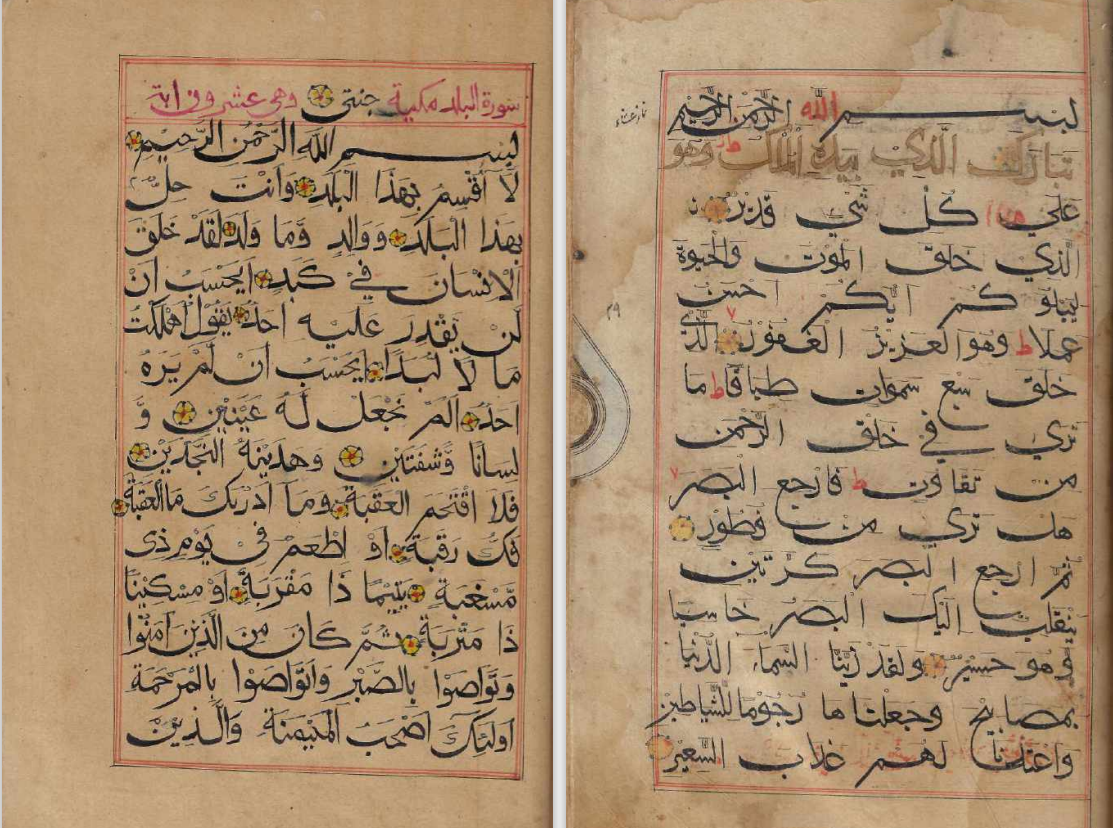 بسم الله الرحمن الرحيم
تبارك الذي بيده الملك وهو
على كل شي قدير
الذي خلق الموت والحيوة
ليبلو كم ايكم احسن
عملا ط وهو العزيز الغفور الذي
خلق سبع سموات طباقا ط ما
ترى في خلق الرحمن
من تفاوت ط فارجع البصر
هل ترى من فطور
ثم ارجع البصر كرتين
ينقلب اليك البصر خاسيا
وهو حسير ولقد زينا السماء الدنيا
بمصابيح وجعلنا ها رجوما للشياطين
واعتدنا لهم عذاب السعير
سورة البلد مكية وهي عشرون اية
بسم الله الرحمن الرحيم
لا اقسم بهذا البلد وانت حل
بهذا البلد ووالد وما ولد لقد خلق
الانسان في كبد ايحسب ان
لن يقدر عليه احد يقول اهلكت
ما لا لبدا ايحسب ان لم يره
احد الم نجعل له عينين و
لسانا وشفتين وهدينه النجدين
فلا اقتحم العقبة وما ادريك ما العقبة
فك رقبة او اطعم في يوم ذى
مسغبة يتيما ذا مقربة او مسكينا
ذا متربة ثم كان من الذين امنوا
وتواصوا بالصبر واتواصوا بالمرحمة
اولئك اصحب الميمنة والذين